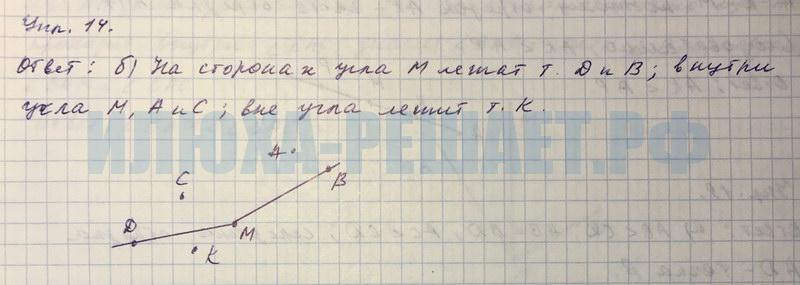 Упр. 14.
Ответ: б) На сторонах угла М лежат т. D и В; внутри
угла М, А и С; вне угла лежит т. К.
ИЛЮХА-РЕШАЕТ.РФ
А
В
С
D
М
К